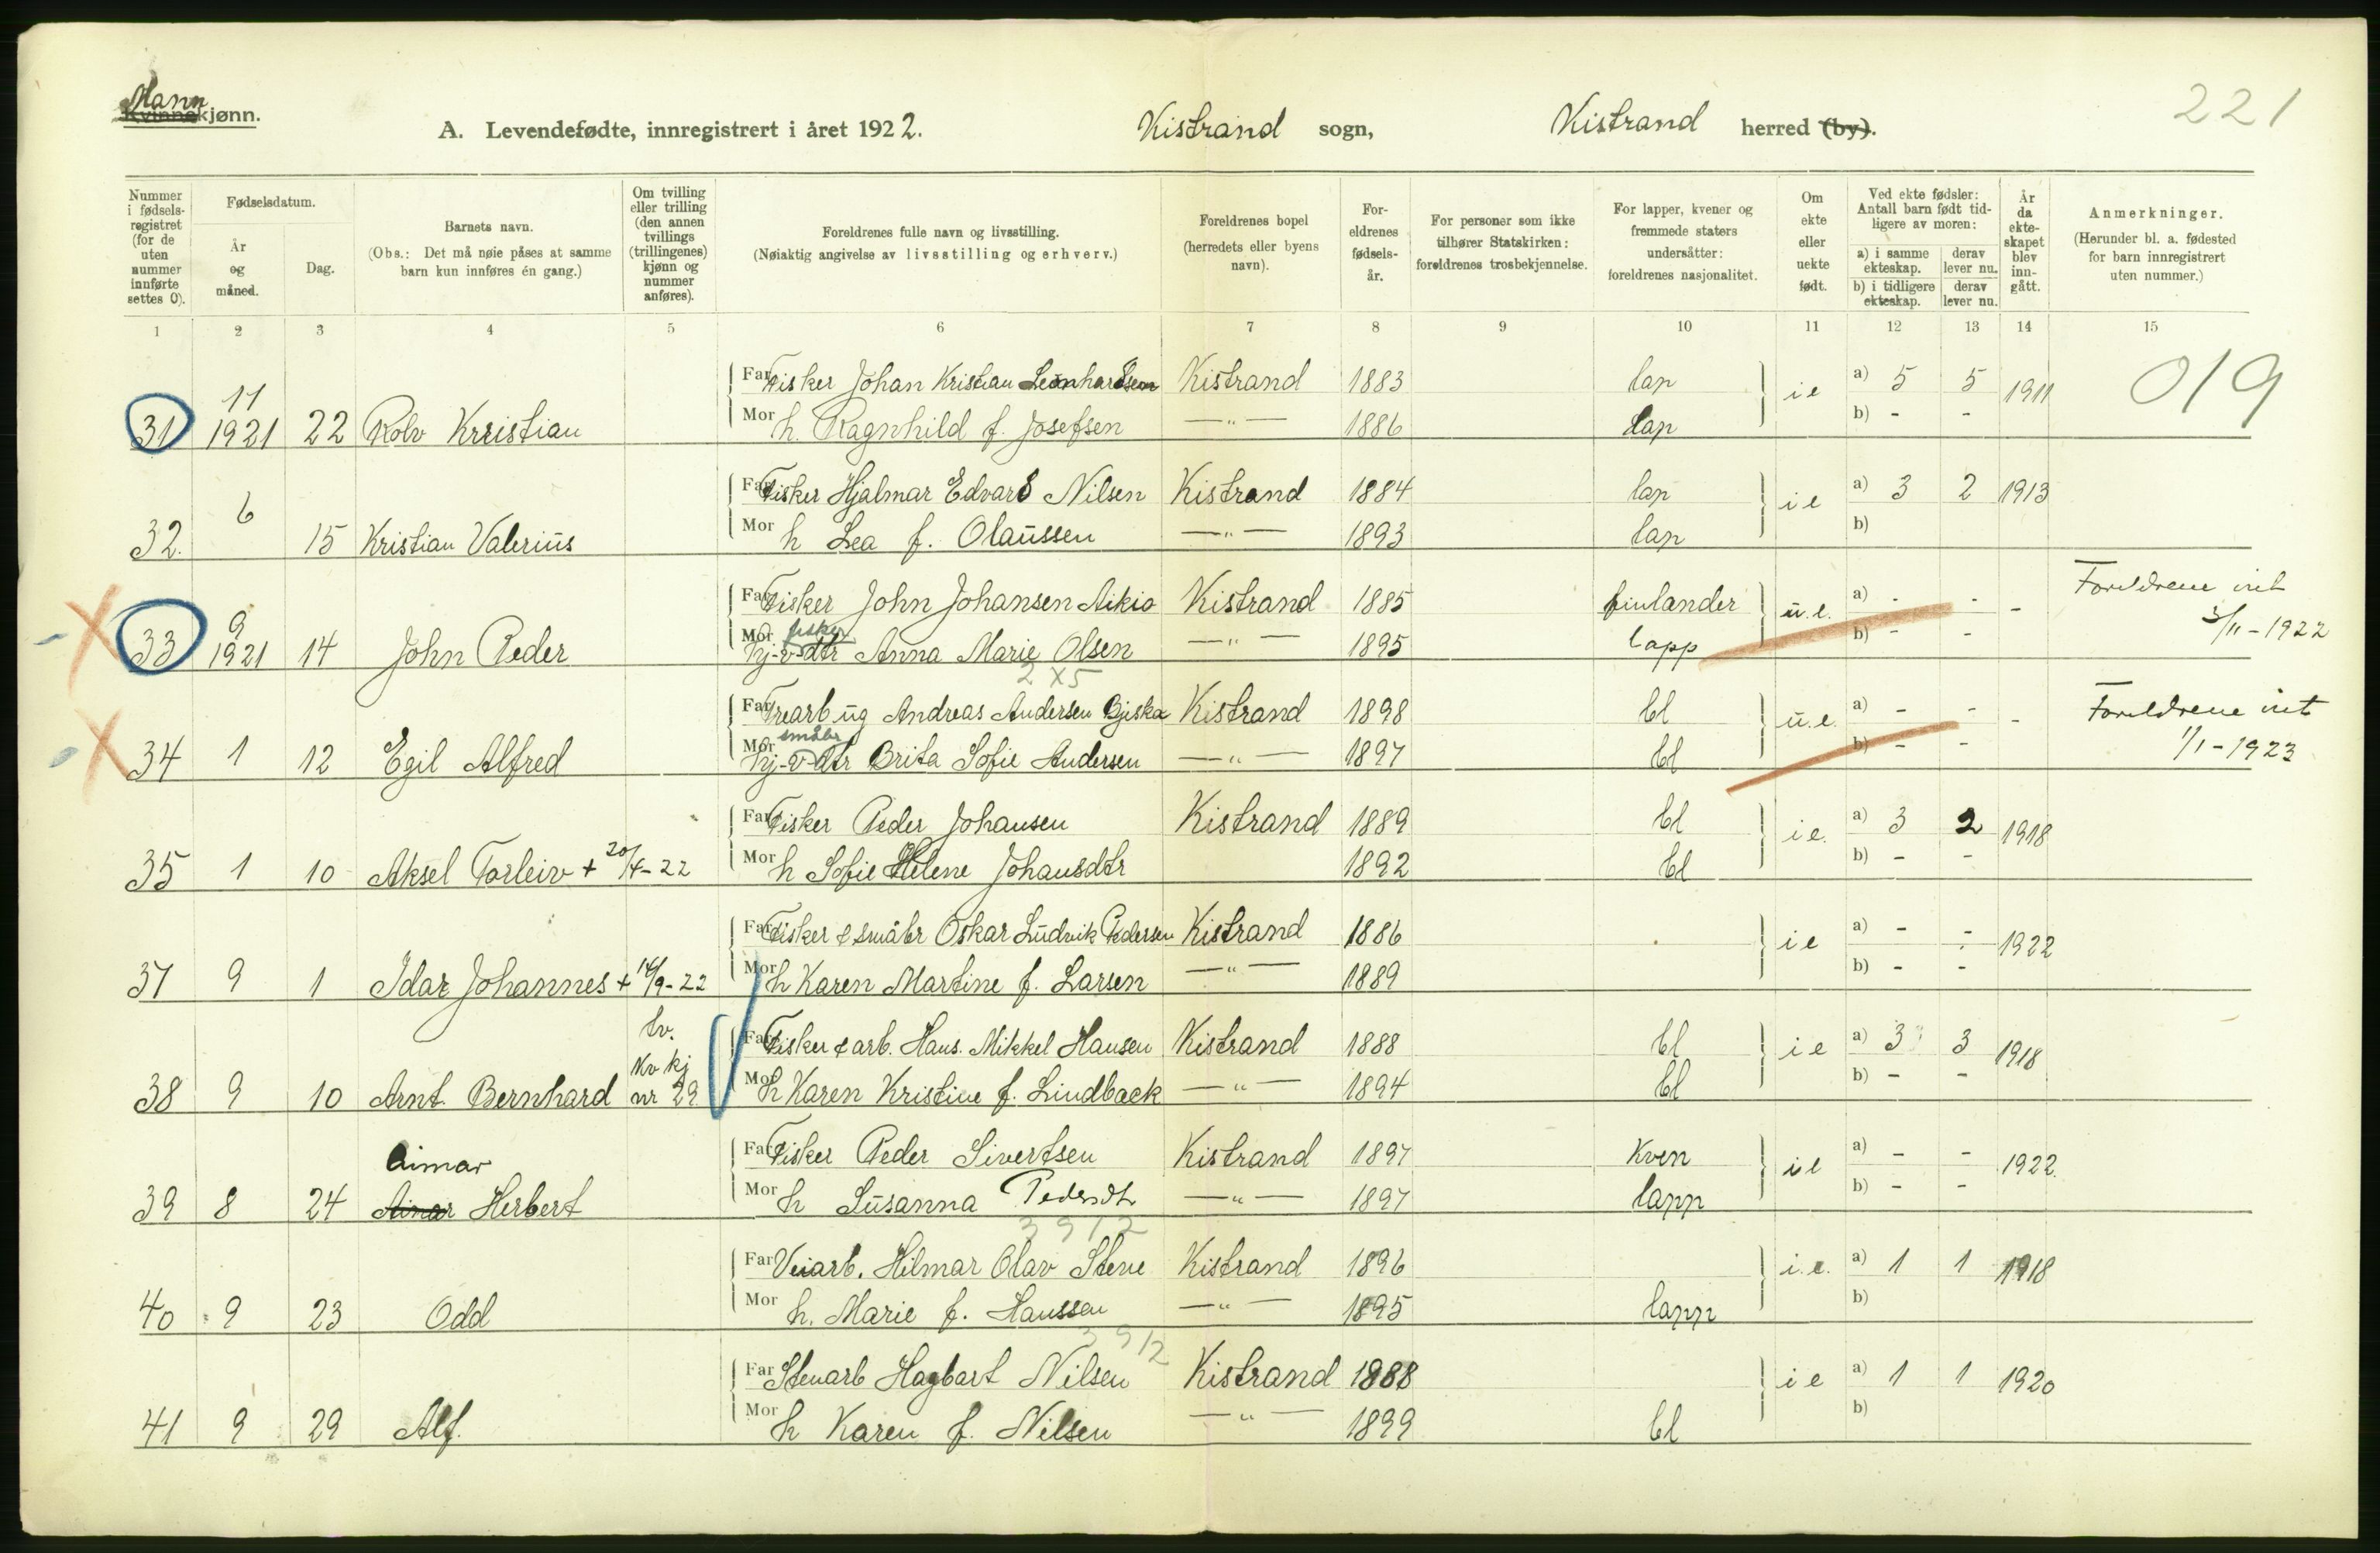 Mann
Kvinnekjønn.
A. Levendefødte, innregistrert i året 1922. Kistrand sogn, Kistrand herred (by). 221
Nummer i fødselsregistret (for de uten nummer innførte settes O).
Fødselsdatum.
År og måned.
Dag.
Barnets navn.
(Obs.: Det må nøie påses at samme barn kun innføres én gang.)
Om tvilling eller trilling (den annen tvillings (trillingenes) kjønn og nummer anføres).
Foreldrenes fulle navn og livsstilling.
(Nøiaktig angivelse av livsstilling og erhverv.)
Foreldrenes bopel (herredets eller byens navn).
Foreldrenes fødselsår.
For personer som ikke tilhører Statskirken: foreldrenes trosbekjennelse.
For lapper, kvener og fremmede staters undersåtter: foreldrenes nasjonalitet.
Om ekte eller uekte født.
Ved ekte fødsler: Antall barn født tidligere av moren:
a) i samme ekteskap. derav lever nu.
b) i tidligere ekteskap. derav lever nu.
År da ekteskapet blev inngått.
Anmerkninger.
(Herunder bl. a. fødested for barn innregistrert uten nummer.)
1 2 3 4 5 6 7 8 9 10 11 12 13 14 15
Far Fisker Johan Kristian Leonhardsen Kistrand 1883 lap i e a) 5 5 1911 019
31 11 1921 22 Rolv Kristian Mor h. Ragnhild f. Josefsen —"— 1886 lap b) - -
Far Fisker Hjalmar Edvard Nilsen Kistrand 1884 lap i e a) 3 2 1913
32. 6 15 Kristian Valerius Mor h Lea f. Olaussen —"— 1893 lap b)
Far Fisker John Johansen Aikio Kistrand 1885 finlander u.e. a) - - - Foreldrene viet
33 9 1921 14 John Peder Mor fisker hj-v-dtr Anna Marie Olsen —"— 1895 lapp b) - - 5/11-1922
2 x 5
Far Trearb ug Andreas Andersen Bjeska Kistrand 1898 bl u.e. a) - - - Foreldrene viet
34 1 12 Egil Alfred Mor småbr hj-v-dtr Brita Sofie Andersen —"— 1897 bl b) - - 1/1-1923
Far Fisker Peder Johansen Kistrand 1889 bl i e. a) 3 2 1918
35 1 10 Aksel Torleiv + 20/4-22 Mor h Sofie Helene Johansdtr 1892 bl b) - -
Far Fisker & småbr Oskar Ludvik Pedersen Kistrand 1886 i e a) - - 1922
37 9 1 Idar Johannes + 14/9-22 Mor h Karen Martine f. Larsen —"— 1889 b) - -
tv. Far Fisker & arb. Hans. Mikkel Hansen Kistrand 1888 bl i e a) 3 3 1918
38 9 10 Arnt. Bernhard kv kj nr 29 Mor h Karen Kristine f. Lindback —"— 1894 bl b) - -
Aimar Far Fisker Peder Sivertsen Kistrand 1897 kven i e a) - - 1922.
39 8 24 Ainar Herbert Mor h Susanna Pedersdtr —"— 1897 lapp b) - -
3912
Far Veiarb. Hilmar Olav Stene Kistrand 1896 i.e. a) 1 1 1918
40 9 23 Odd Mor h. Marie f. Hanssen —"— 1895 lapp b)
3912
Far Stenarb Hagbart Nilsen Kistrand 1888 i e a) 1 1 1920
41 9 29 Alf. Mor h Karen f. Nilsen —"— 1899 bl b)